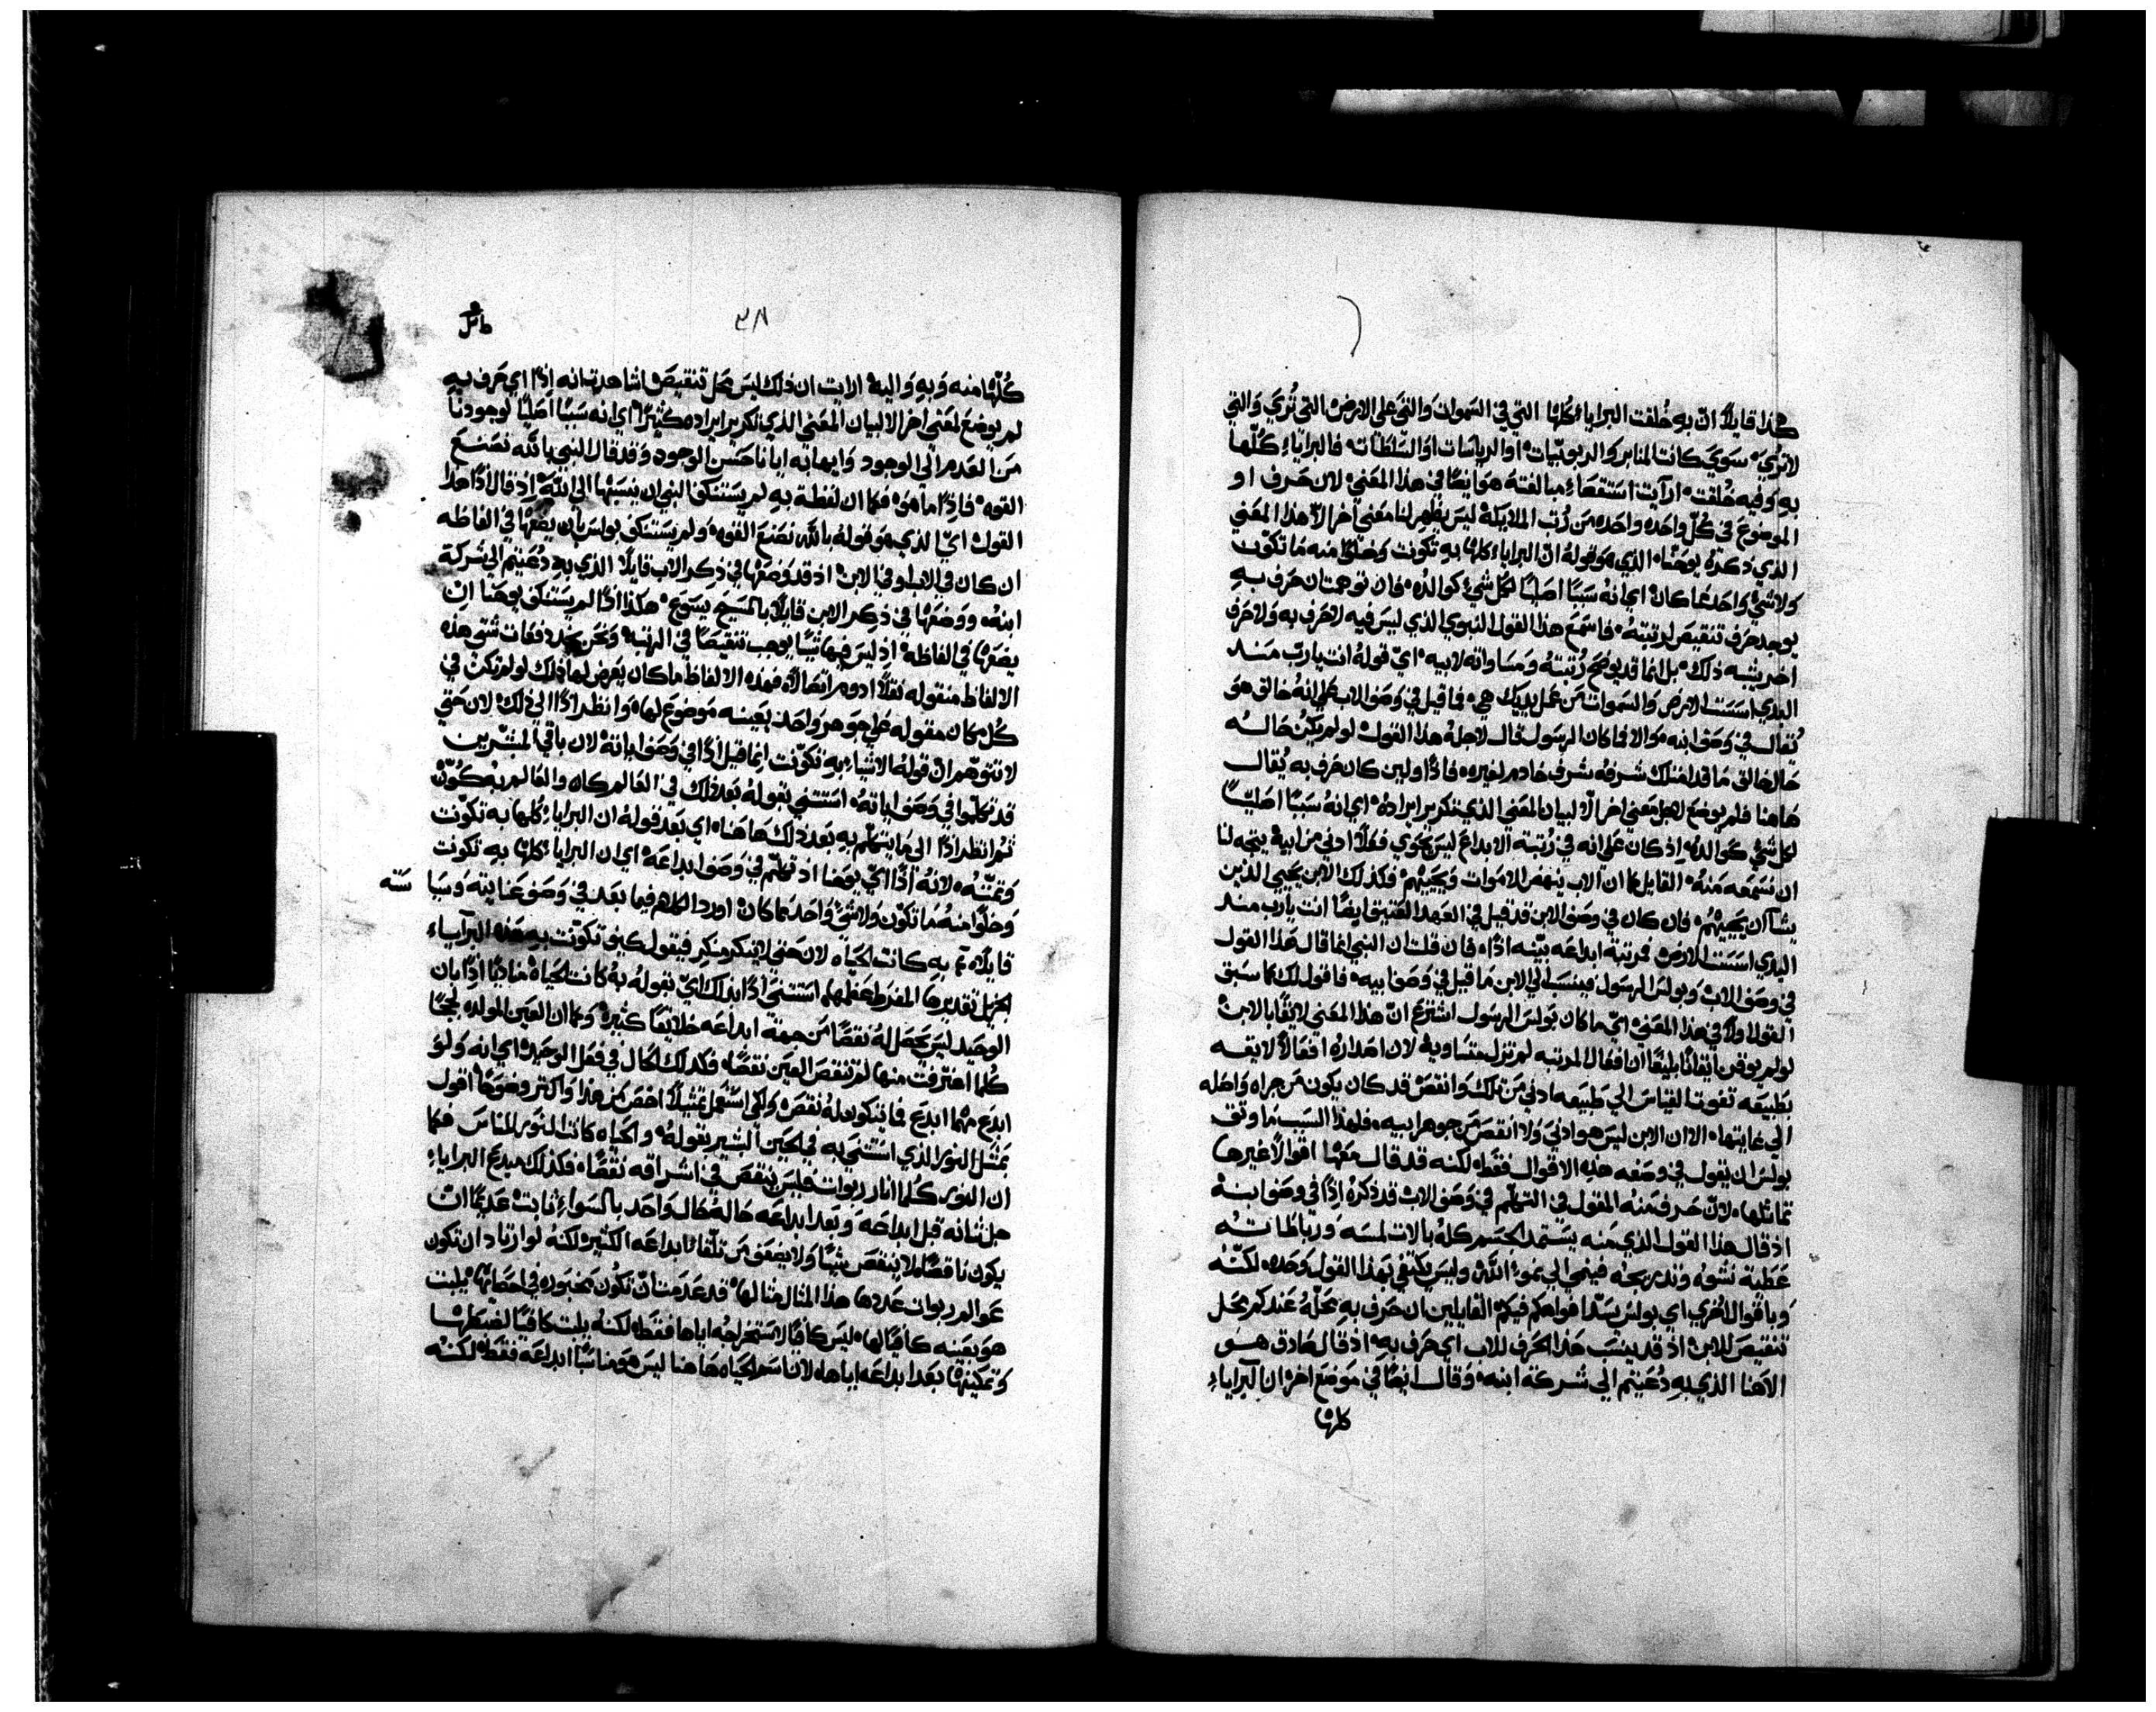 هكذا قايلاً انّ به خُلقت البرايا كلها التي في السموات والتي على الارض التي تُري والتي
لا تري سوي كانت المنابر او الربوبيات او الرياسات او السلطات فالبرايا كُلّها
به وفيه خُلقت ارايت استقصاء مبالغته هو ايضًا في هذا المعني لان حرف او
الموضوع في كُل واحده واحده من رُتب الملايكة ليس يظهر لنا معني اخر الّا هذا المعني
الذي ذكره يوحنا الذي هو قوله انّ البرايا كلها به تكونت وخلوًا منه ما تكوّن
ولا شي واحد مما كان اي انه سببًا اصليًا لكل شي كوالده فان توهمت ان حرف به
يوجد حرف تنقيص لرتبته فاسمع هذا القول النبوي الذي ليس فيه لا حرف به ولا حرف
اخر يشبه ذلك بل انما قد يوضح رُتبته ومساواته لابيه ايّ قوله انت يا رب منذ
البدي اسست الارض والسموات من عمل يديك هي فما قيل في وصف الاب علي انه خالق هو
يُقال في وصف ابنه والا فما كان الرسول قال لاجله هذا القول لو لم يكن حاله
حال خالق ما قد امتلك شرفه شرف خادم لغيره فاذًا ولين كان حرف به يُقال
هاهنا فلم يوضع لاجل معني اخر الّا لبيان المعني الذي نكرر ايراده اي انه سببًا اصليًّا
لكل شي كوالده اذ كان علي انه في رُتبته الابداع ليس يحوي فعلًا ادني من ابيه يتجه لنا
ان نسمعه منه القايل كما ان الاب ينهض الاموات ويحييهم فكذلك الابن يحيي الذين
يشا ان يحييهم فان كان في وصف الابن قد قيل في العهد العتيق ايضًا انت يا رب منذ
البدي اسست الارض فمرتبة ابداعه بينه اذًا فان قلت ان النبي انما قال هذا القول
في وصف الاب وبولس الرسول فينسب الي الابن ما قيل في وصف ابيه فاقول لك كما سبق
القول اولًا في هذا المعني ايّ ما كان بولس الرسول اشترع انّ هذا المعني لايقًا بالابن
لو لم يوقن ايقانًا بليغًا ان افعال المرتبه لم تزل متساوية لان اصداره افعالًا لايقه
بطبيعه تفوت القياس الي طبيعه ادني من تلك وانقص قد كان يكون من جراه واصله
الي غايتها الا ان الابن ليس هو ادني ولا انقص من جوهر ابيه فلهذا السبب ما وثق
بولس ان يقول في وصفه هذه الاقوال فقط لكنه قد قال معها اقوالًا غيرها
تماثلها لانّ حرف منه المقول في التكلم في وصف الاب قد ذكره اذًا في وصف ابنه
اذ قال هذا القول الذي منه يستمد الجسم كله بالات لمسه ورباطاته
عطية نشوه وتدريجه فينمي الي نمو الله وليس يكتفي بهذا القول وحده لكنّه
وباقوال اخري اي بولس يسدّ افواهكم فيكم القايلين ان حرف به محله عندكم محل
تنقيص للابن اذ قد ينسب هذا الحرف للاب اي حرف به اذ قال صادق هو
الاهنا الذي به دُعيتم الي شركة ابنه وقال ايضًا في موضع اخر ان البرايا
كلها
٣٨
كُلّها منه وبه واليه ارايت ان ذلك ليس محل تنقيص اشاهدت انه اذًا اي حرف به
لم يوضع لمعني اخر الا لبيان المعني الذي نكرر ايراده كثيرًا اي انه سببًا اصليًّا لوجودنا
من العدم الي الوجود وايهابه ايانا حسن الوجود وقد قال النبي بالله نصنع
القوه فاذًا ما هو فكما ان لفظة به لم يستنكف النبي ان ينسبها الي الله اذ قال اذًا هذا
القول ايّ الذي هو قوله بالله نصنع القوه ولم يستنكف بولس بان يضعها في الفاظه
ان كان في الاب او في الابن اذ قد وضعها في ذكر الاب قايلًا الذي به دُعيتم الي شركة
ابنه ووضعها في ذكر الابن قايلًا بالمسيح يسوع هكذا اذًا لم يستنكف يوحنا انّ
يضعها في الفاظه اذ ليس فيها شيًا يوجب تنقيصًا في الرتبة ونحن نجد دفعات شتي هذه
الالفاظ منقوله نقلًا ادوم اتصالًا فهذه الالفاظ ما كان يعرض لها ذلك لو لم تكن في
كُل مكان مقوله علي جوهر واحد بعينه موضوع لها وانظر اذًا الي ذلك لان حتي
لا تتوهم انّ قوله الاشيا به تكونت انما قيل اذًا في وصف اياته لان باقي المبشرين
قد تكلموا في وصف اياته استثني بقوله بعد ذلك في العالم كان والعالم به كُوّن
ثم انظر اذًا الي ما يتكلم به بعد ذلك هاهنا اي بعد قوله ان البرايا كلها به تكونت
وتمتّه لانه اذًا ايّ يوحنا اذ تكلم في وصف ابداعه اي ان البرايا كلها به تكونت
وخلوًا منه ما تكوّن ولا شي واحد مما كان اورد الكلام فيما بعد في وصف عنايته وسيا سته
قايلًا ثم به كانت الحياه لان حتي لا ينكر منكر فيقول كيف تكونت به هذه البرايا
الجزيل تقديرها المفرط عظمها استثني اذًا بذلك ايّ بقوله به كانت الحياه مناديًا اذًا بان
الوحيد ليس يحصل له نقصًا من جهة ابداعه خلايقًا كثيره وكما ان العين المولده لججًا
كُلما اغترفت منها لم تنقص العين نقصًا فكذلك الحال في فعل الوحيد اي انه ولو
ابدع مهما ابدع فما يتكون له نقص ولكي استعمل تمثيلًا اخص من هذا واكثر وضوحًا اقول
بمثل النور الذي استثني به في الحين البشير بقوله والحياه كانت النور للناس فكما
ان النور كُلما انار ربوات فليس ينقص في اشراقه نقصًا فكذلك مبدع البرايا
جل شانه قبل ابداعه وبعد ابداعه حاله حال واحد بالسواء ثابت عديمًا انّ
يكون ناقصًا لا ينقص شيًا ولا يضعف من تلقا ابداعه الكثير لكنه لو ازداد ان تكون
عوالم ربوات عددها هذا المثال مثالها قد عدمت انّ تكون محبوره في احصايها يلبث
هو بعينه كافيًا لها ليس كافيًا لاستخراجه اياها فقط لكنه يلبث كافيًا لضبطها
وتمكينها بعد ابداعه اياها لان اسم الحياه هاهنا ليس هو مناسبًا ابداعه فقط لكنه